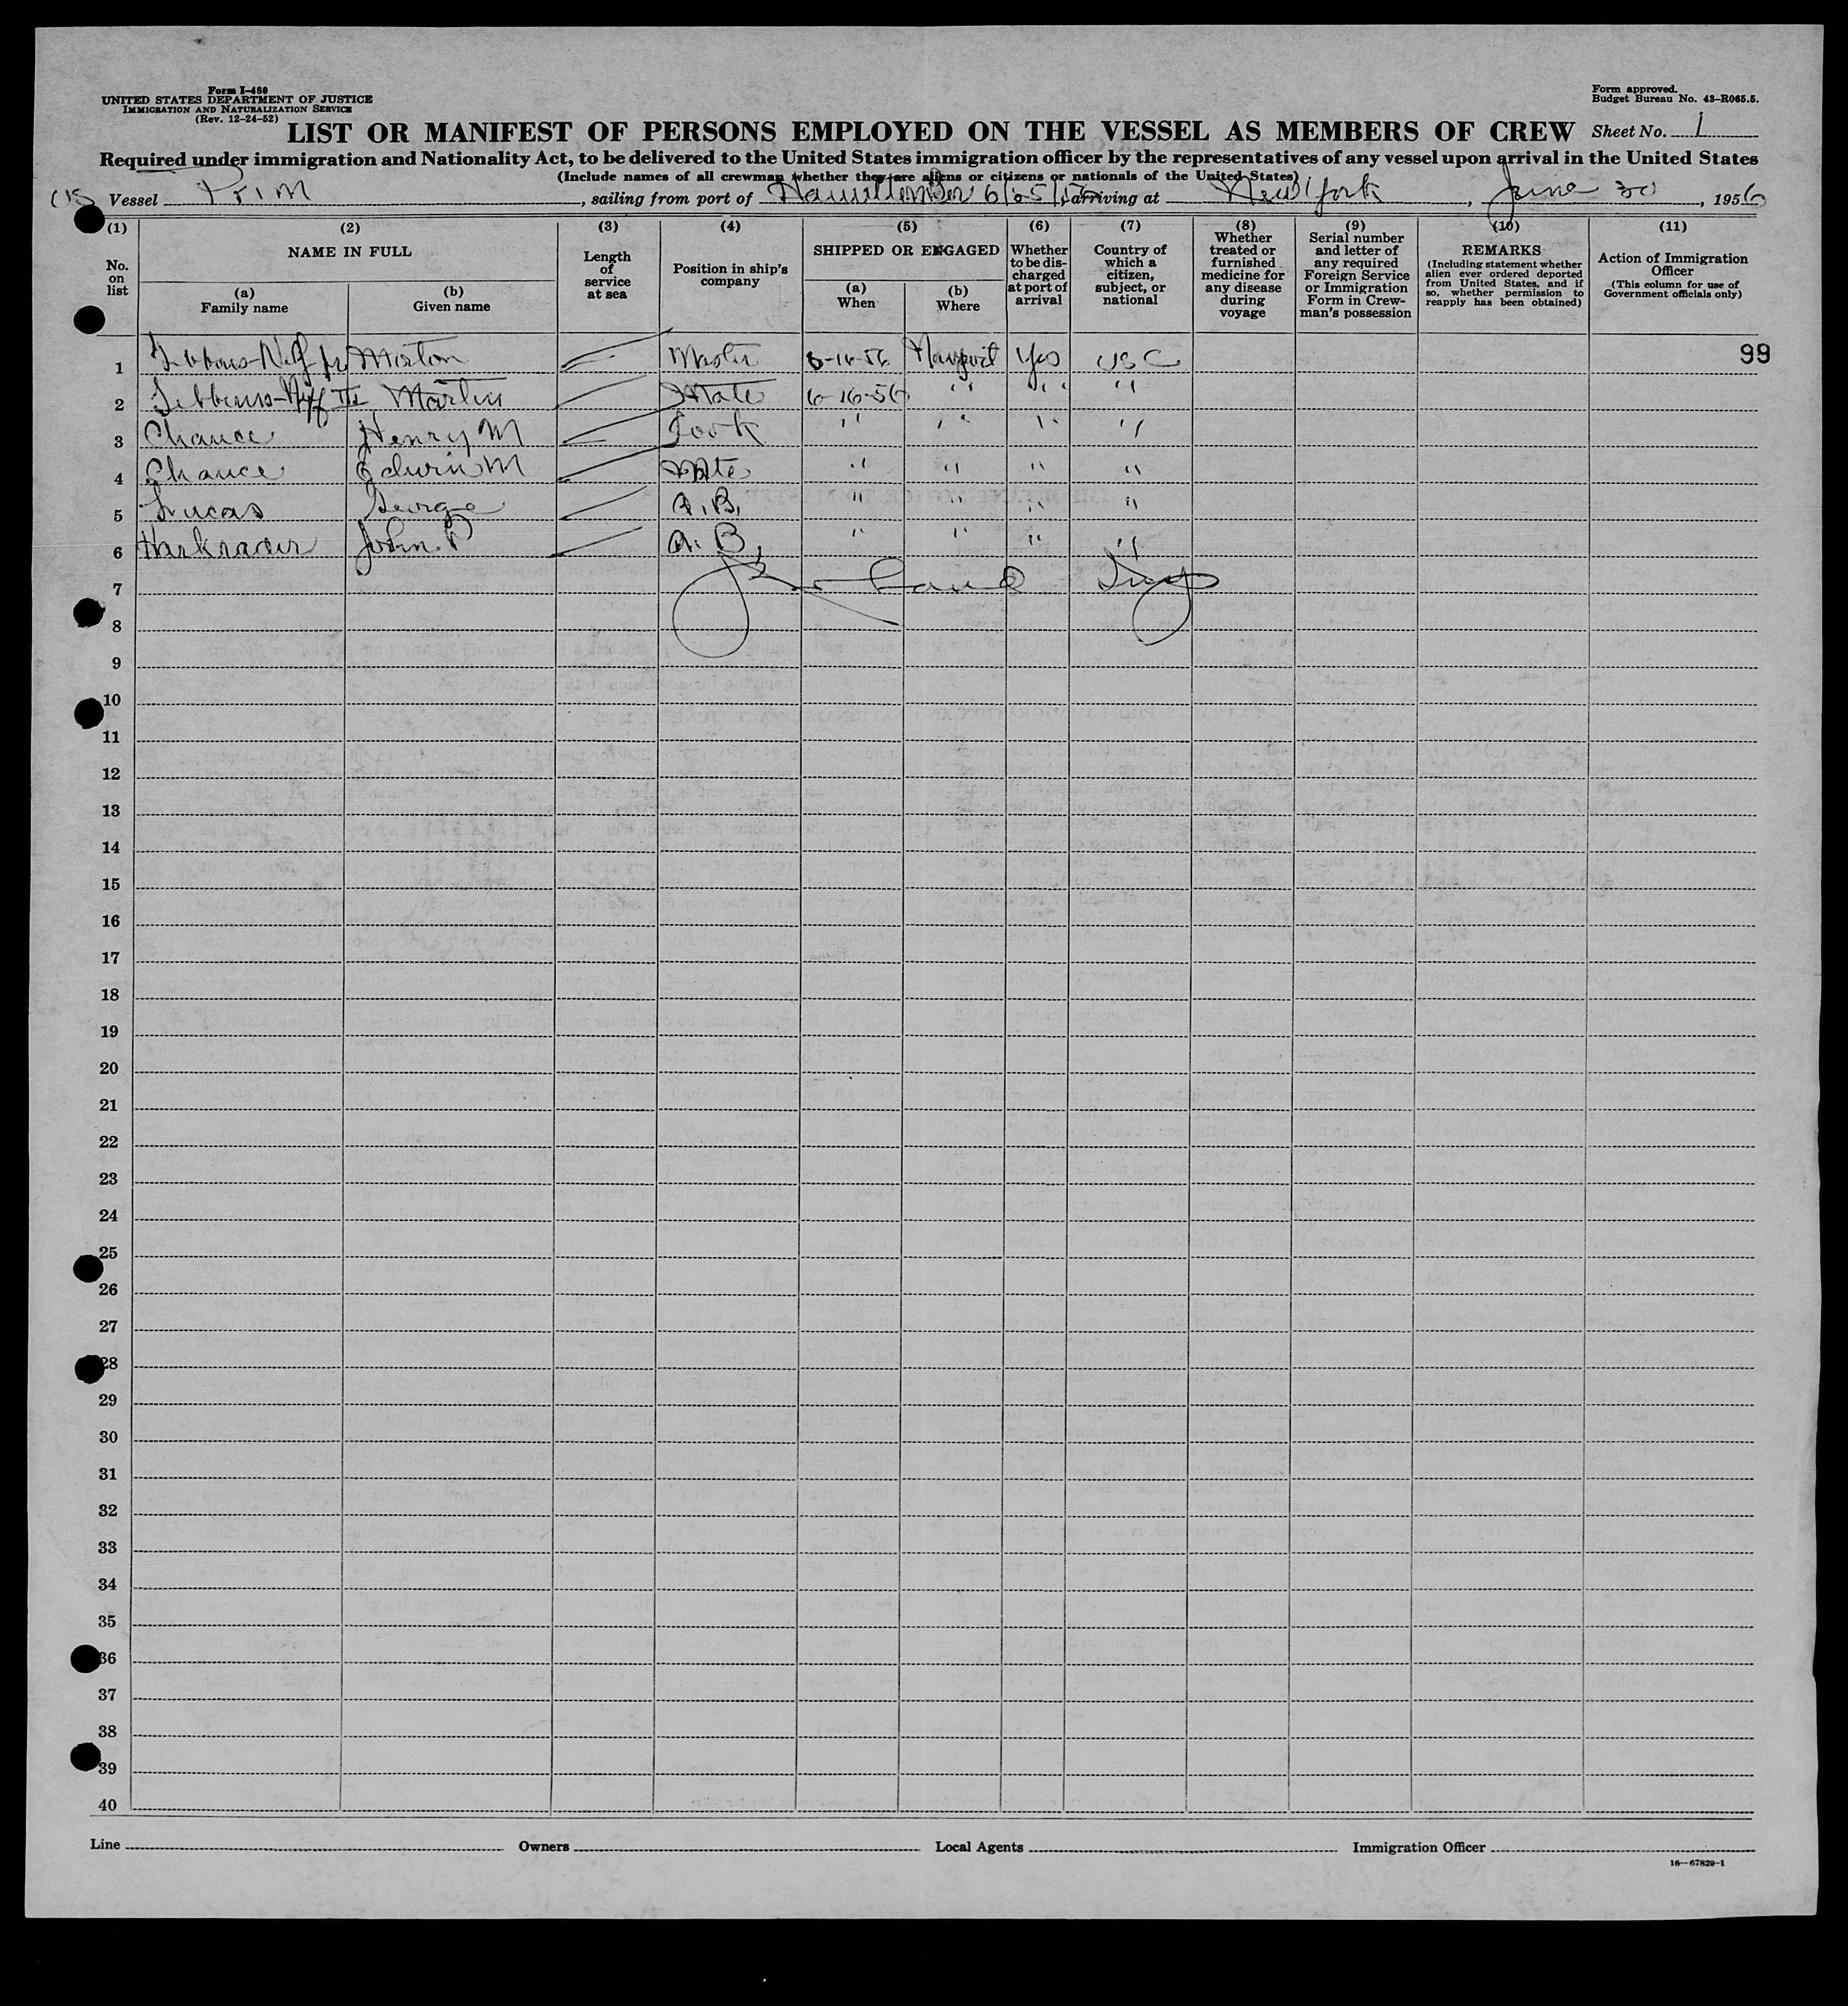 Form I-480
UNITED STATES DEPARTMENT OF JUSTICE
IMMIGRATION AND NATURALIZATION SERVICE
(Rev. 12-24-52)
Form approved.
Budget Bureau No. 43-R065.5.
LIST OR MANIFEST OF PERSONS EMPLOYED ON THE VESSEL AS MEMBERS OF CREW Sheet No. 1
Required under immigration and Nationality Act, to be delivered to the United States immigration officer by the representatives of any vessel upon arrival in the United States
(Include names of all crewman whether they are aliens or citizens or nationals of the United States)
US Vessel Prim, sailing from port of 6/25/56, arriving at New York, June 30, 1956
(1) No. on list
(2) NAME IN FULL
(a) Family name
(b) Given name
(3) Length of service at sea
(4) Position in ship's company
(5) SHIPPED OR ENGAGED
(a) When
(b) Where
(6) Whether to be discharged at port of arrival
(7) Country of which a citizen, subject, or national
(8) Whether treated or furnished medicine for any disease during voyage
(9) Serial number and letter of any required Foreign Service or Immigration Form in Crewman's possession
(10) REMARKS
(Including statement whether alien ever ordered deported from United States, and if so, whether permission to reapply has been obtained)
(11) Action of Immigration Officer
(This column for use of Government officials only)
99
1 Gibbons-Neff jr Morton Master 6-16-56 Newport Yes USC
2 Gibbons-Neff III Mate 6-16-56 " " "
3 Chance Henry M Cook " " " "
4 Chance Edwin M Mate " " " "
5 Lucas George A.B. " " " "
6 Harkrader John P A.B. " " " "
7
8
9
10
11
12
13
14
15
16
17
18
19
20
21
22
23
24
25
26
27
28
29
30
31
32
33
34
35
36
37
38
39
40
Line
Owners
Local Agents
Immigration Officer
16—67829-1